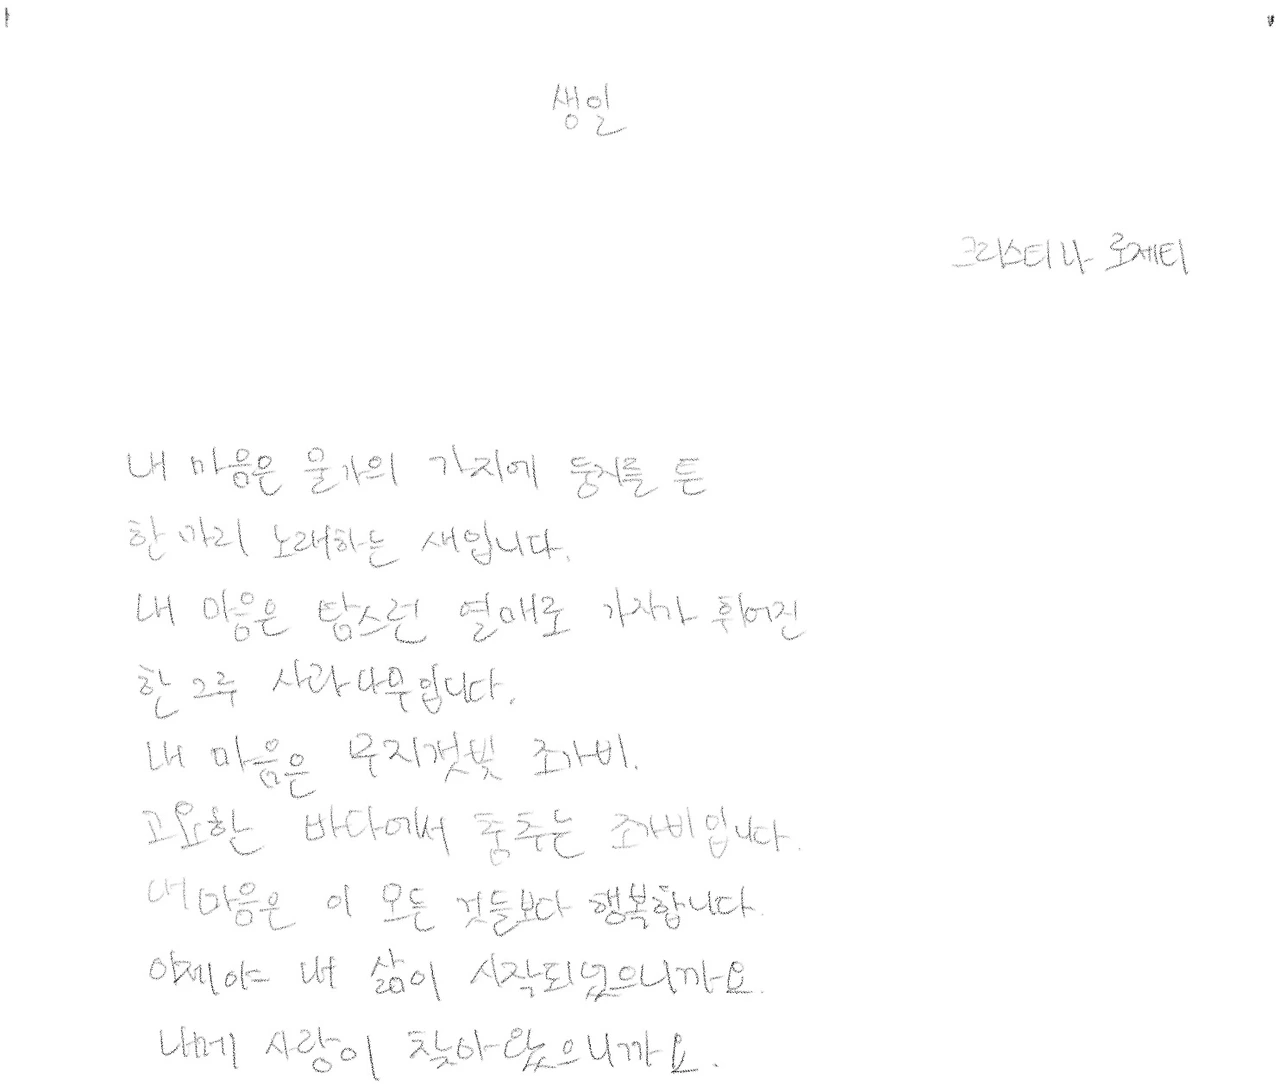 생일
크리스티나 로제티
내 마음은 물가의 가지에 둥지를 튼
한 마리 노래하는 새입니다.
내 마음은 탐스런 열매로 가지가 휘어진
한 그루 사과나무입니다.
내 마음은 무지갯빛 조가비.
고요한 바다에서 춤추는 조가비입니다.
내 마음은 이 모든 것들보다 행복합니다.
이제야 내 삶이 시작되었으니까요.
내게 사랑이 찾아왔으니까요.